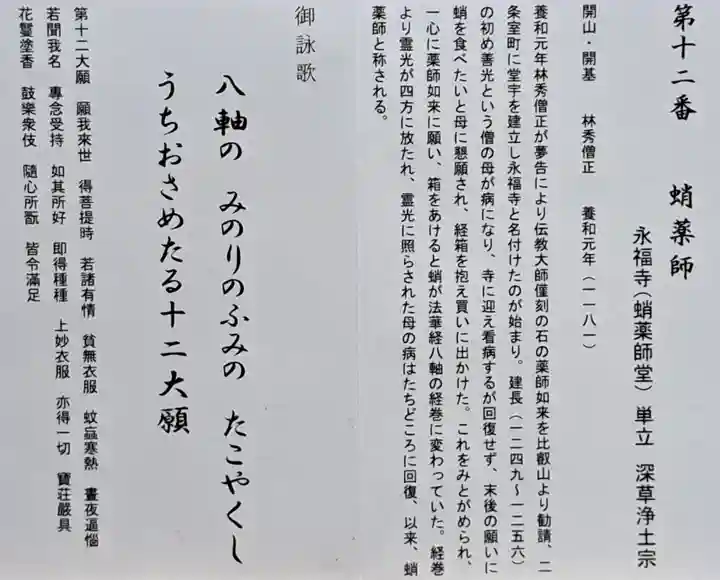 第十二番　蛸薬師
永福寺（蛸薬師堂）単立　深草浄土宗
開山・開基　林秀僧正　養和元年（一一八一）
養和元年林秀僧正が夢告により伝教大師僅刻の石の薬師如来を比叡山より勧請、二
条室町に堂宇を建立し永福寺と名付けたのが始まり。建長（一二四九〜一二五六）
の初め善光という僧の母が病になり、寺に迎え看病するが回復せず、末後の願いに
蛸を食べたいと母に懇願され、経箱を抱え買いに出かけた。これをみとがめられ、
一心に薬師如来に願い、箱をあけると蛸が法華経八軸の経巻に変わっていた。経巻
より霊光が四方に放たれ、霊光に照らされた母の病はたちどころに回復、以来、蛸
薬師と称される。
御詠歌
八軸の　みのりのふみの　たこやくし
うちおさめたる十二大願
第十二大願　願我來世　得菩提時　若諸有情　貧無衣服　蚊蝱寒熱　晝夜逼惱
若聞我名　專念受持　如其所好　即得種種　上妙衣服　亦得一切　寶莊嚴具
花鬘塗香　鼓樂衆伎　隨心所翫　皆令滿足